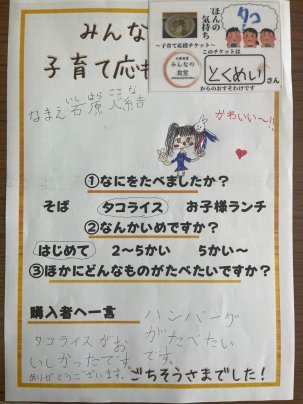 みんな
子育て応
ほんの
気持ち
タコ
～子育て応援チケット～
このチケットは
みんなの
食堂
とくめいさん
からのおすそわけです
なまえ 石原
いし はら ここ な
かわいい〜!!
①なにをたべましたか？
そば タコライス お子様ランチ
②なんかいめですか？
はじめて 2～5かい 5かい～
③ほかにどんなものがたべたいですか？
購入者へ一言
タコライスがお
いしかったです。
ありがとうございます。
ハンバーグ
がたべたい
です。
ごちそうさまでした！